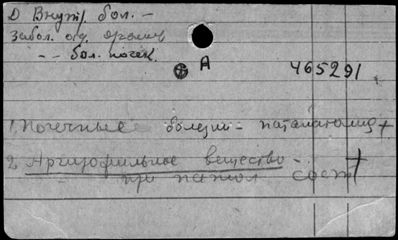 D Внутр. бол. –
Забол. отд. органов
– – бол. почек.
А
465291
1. Почечные болезни – патанатомия +
2. Аргирофильное вещество –. +
– при патол сост